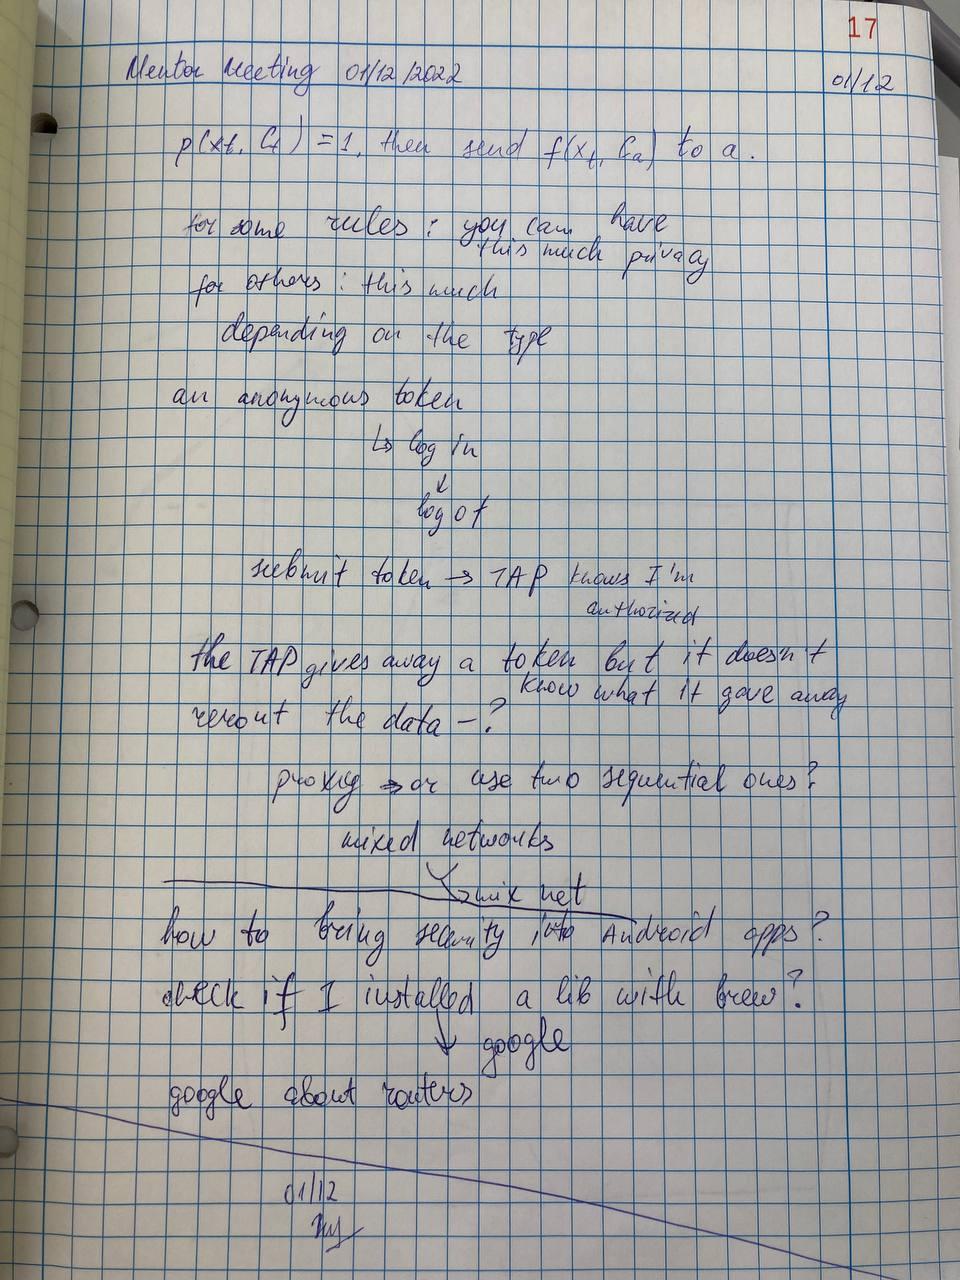 17
Mentor Meeting 01/12/2022
01/12
p(xt, Ct) = 1, then send f(xt, Ca) to a.
for some rules : you can have
this much privacy
for others : this much
depending on the type
an anonymous token
↳ log in
↓
log of
submit token → TAP knows I'm
authorized
the TAP gives away a token but it doesn't
know what it gave away
rerout the data – ?
proxy → or use two sequential ones?
mixed networks
↳ mix net
how to bring security into Android apps?
check if I installed a lib with brew?
↓ google
google about routers
01/12